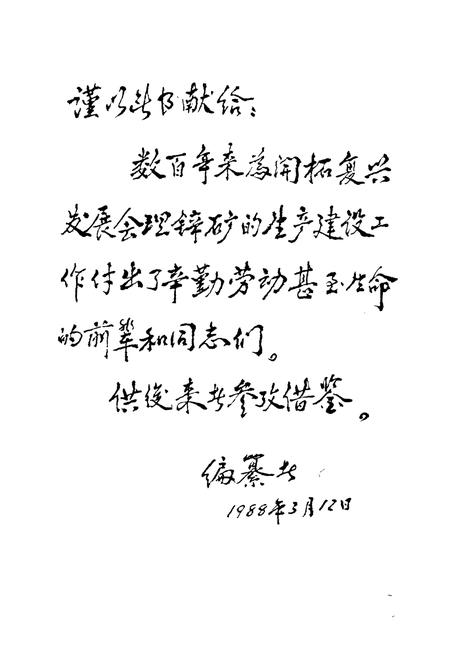 谨以此书献给：
数百年来為開拓复兴
发展会理锌矿的生产建设工
作付出了辛勤劳动甚至生命
的前辈和同志们。
供後来者参攷借鉴。
编纂者
1988年3月12日